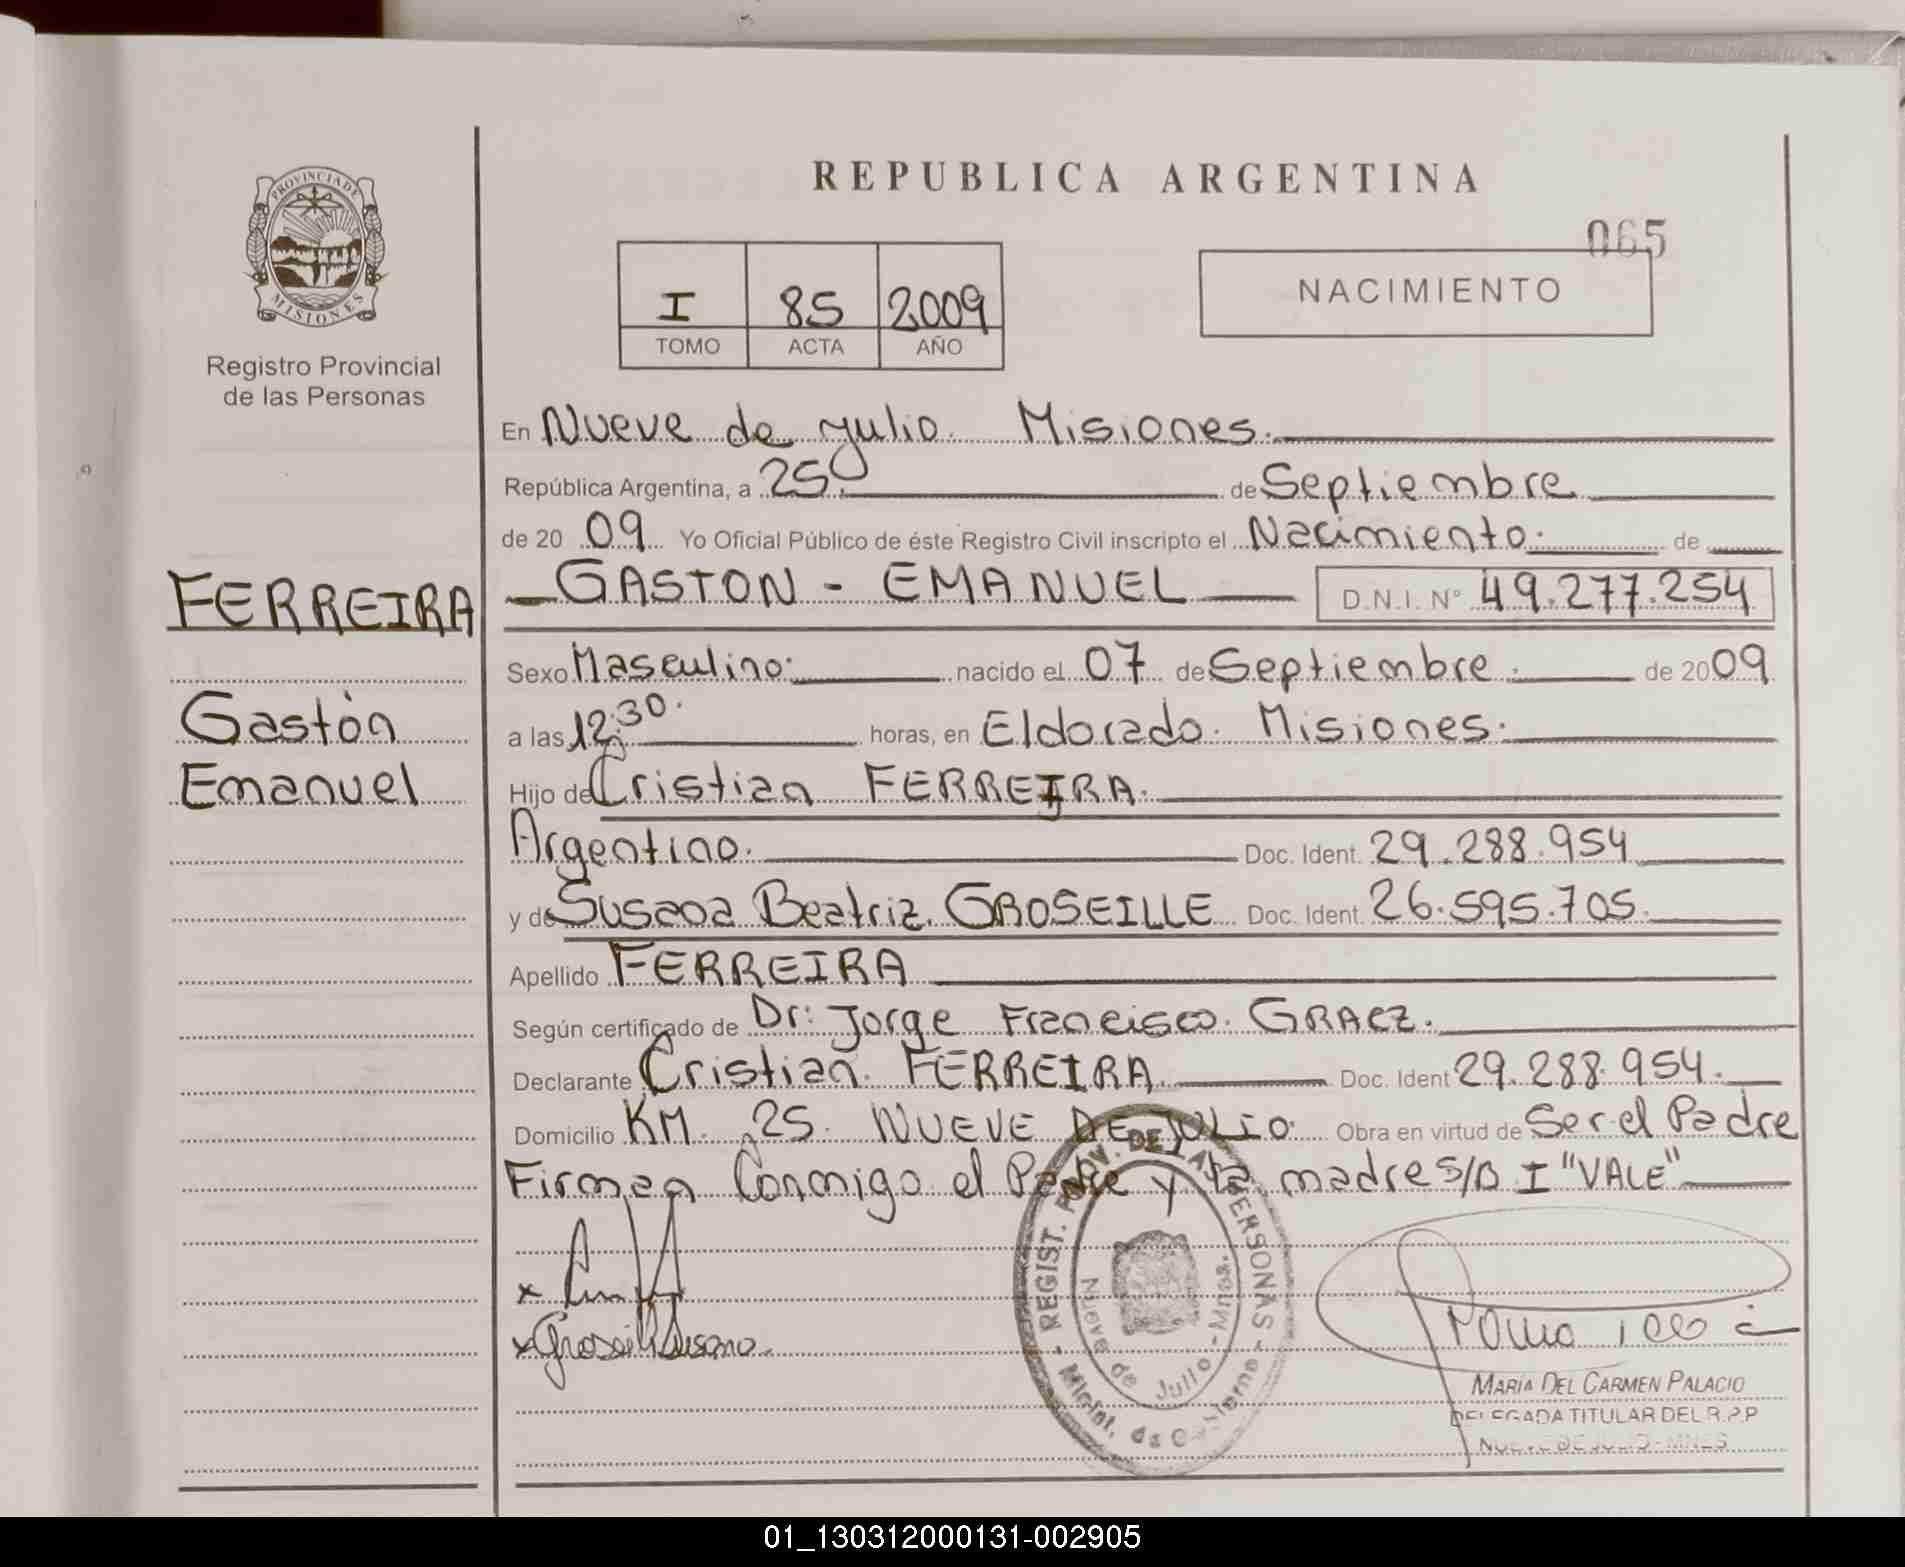 PROVINCIA DE
MISIONES
Registro Provincial
de las Personas
FERREIRA
Gastón
Emanuel
REPUBLICA ARGENTINA
065
NACIMIENTO
I 85 2009
TOMO ACTA AÑO
En Nueve de julio. Misiones.
República Argentina, a 25. de Septiembre
de 20 09 Yo Oficial Público de éste Registro Civil inscripto el Nacimiento. de
GASTON - EMANUEL D.N.I. N° 49.277.254
Sexo Masculino. nacido el 07 de Septiembre. de 2009
a las 12:30. horas, en Eldorado. Misiones.
Hijo de Cristian FERREIRA.
Argentino. Doc. Ident. 29.288.954
y de Susana Beatriz. GROSEILLE Doc. Ident. 26.595.705.
Apellido FERREIRA
Según certificado de Dr: Jorge Francisco. GRAEZ.
Declarante Cristian. FERREIRA Doc. Ident 29.288.954.
Domicilio KM. 25. NUEVE DE JULIO. Obra en virtud de Ser el Padre
Firman Conmigo el Padre y la madre S/B I "VALE"
x
x Groseille Susana.
REGIST. PROV. DE LAS PERSONAS
Nueve de Julio - Mnes.
Minist. de Gobierno
MARIA DEL CARMEN PALACIO
DELEGADA TITULAR DEL R.P.P
NUEVE DE JULIO - MNES
01_130312000131-002905